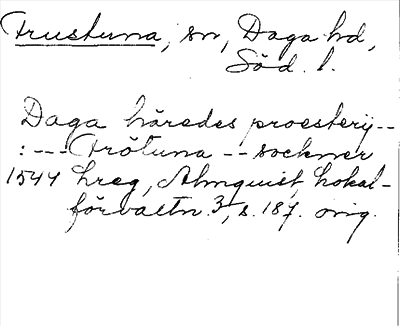 Frustuna, sn, Daga hd,
Söd. l.
Daga häredes proesterij--
:--- Frötuna -- sockner
1544 Lreg, Almquist, Lokal-
förvaltn. 3, s. 187. orig.